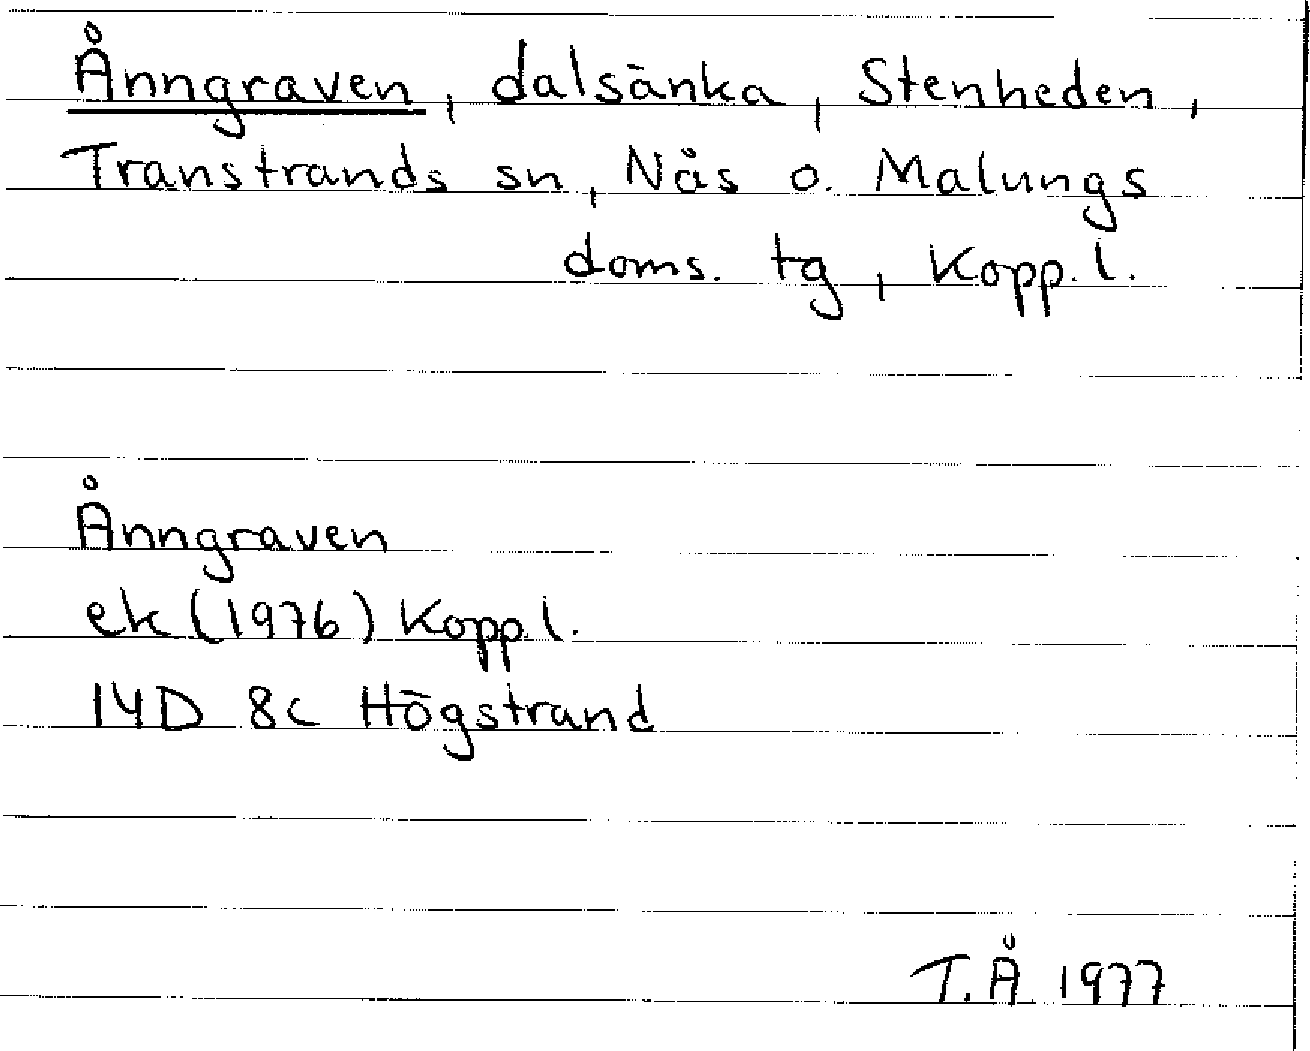 Ånngraven, dalsänka, Stenheden,
Transtrands sn, Nås o. Malungs
doms. tg, Kopp. l.
Ånngraven
ek (1976) Kopp. l.
14D 8c Högstrand
T.Å 1977